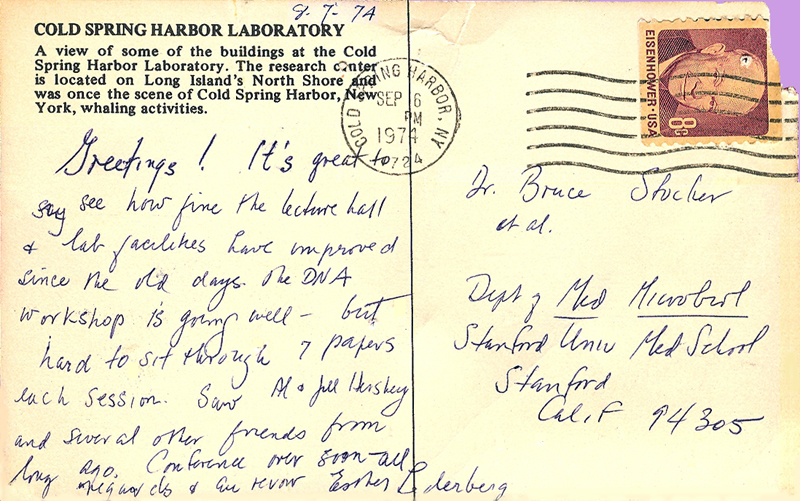 9-7-74
COLD SPRING HARBOR LABORATORY
A view of some of the buildings at the Cold
Spring Harbor Laboratory. The research center
is located on Long Island's North Shore and
was once the scene of Cold Spring Harbor, New
York, whaling activities.
COLD SPRING HARBOR, NY
SEP 6
PM
1974
11724
EISENHOWER·USA
8c
Greetings! It's great to
say see how fine the lecture hall
& lab facilities have improved
since the old days. The DNA
workshop is going well - but
hard to sit through 7 papers
each session. Saw Al & Jill Hershey
and several other friends from
long ago. Conference over soon - all
regards & au revoir Esther Lederberg
Dr. Bruce Stocker
et al.
Dept of Med Microbiol
Stanford Univ Med School
Stanford
Calif 94305